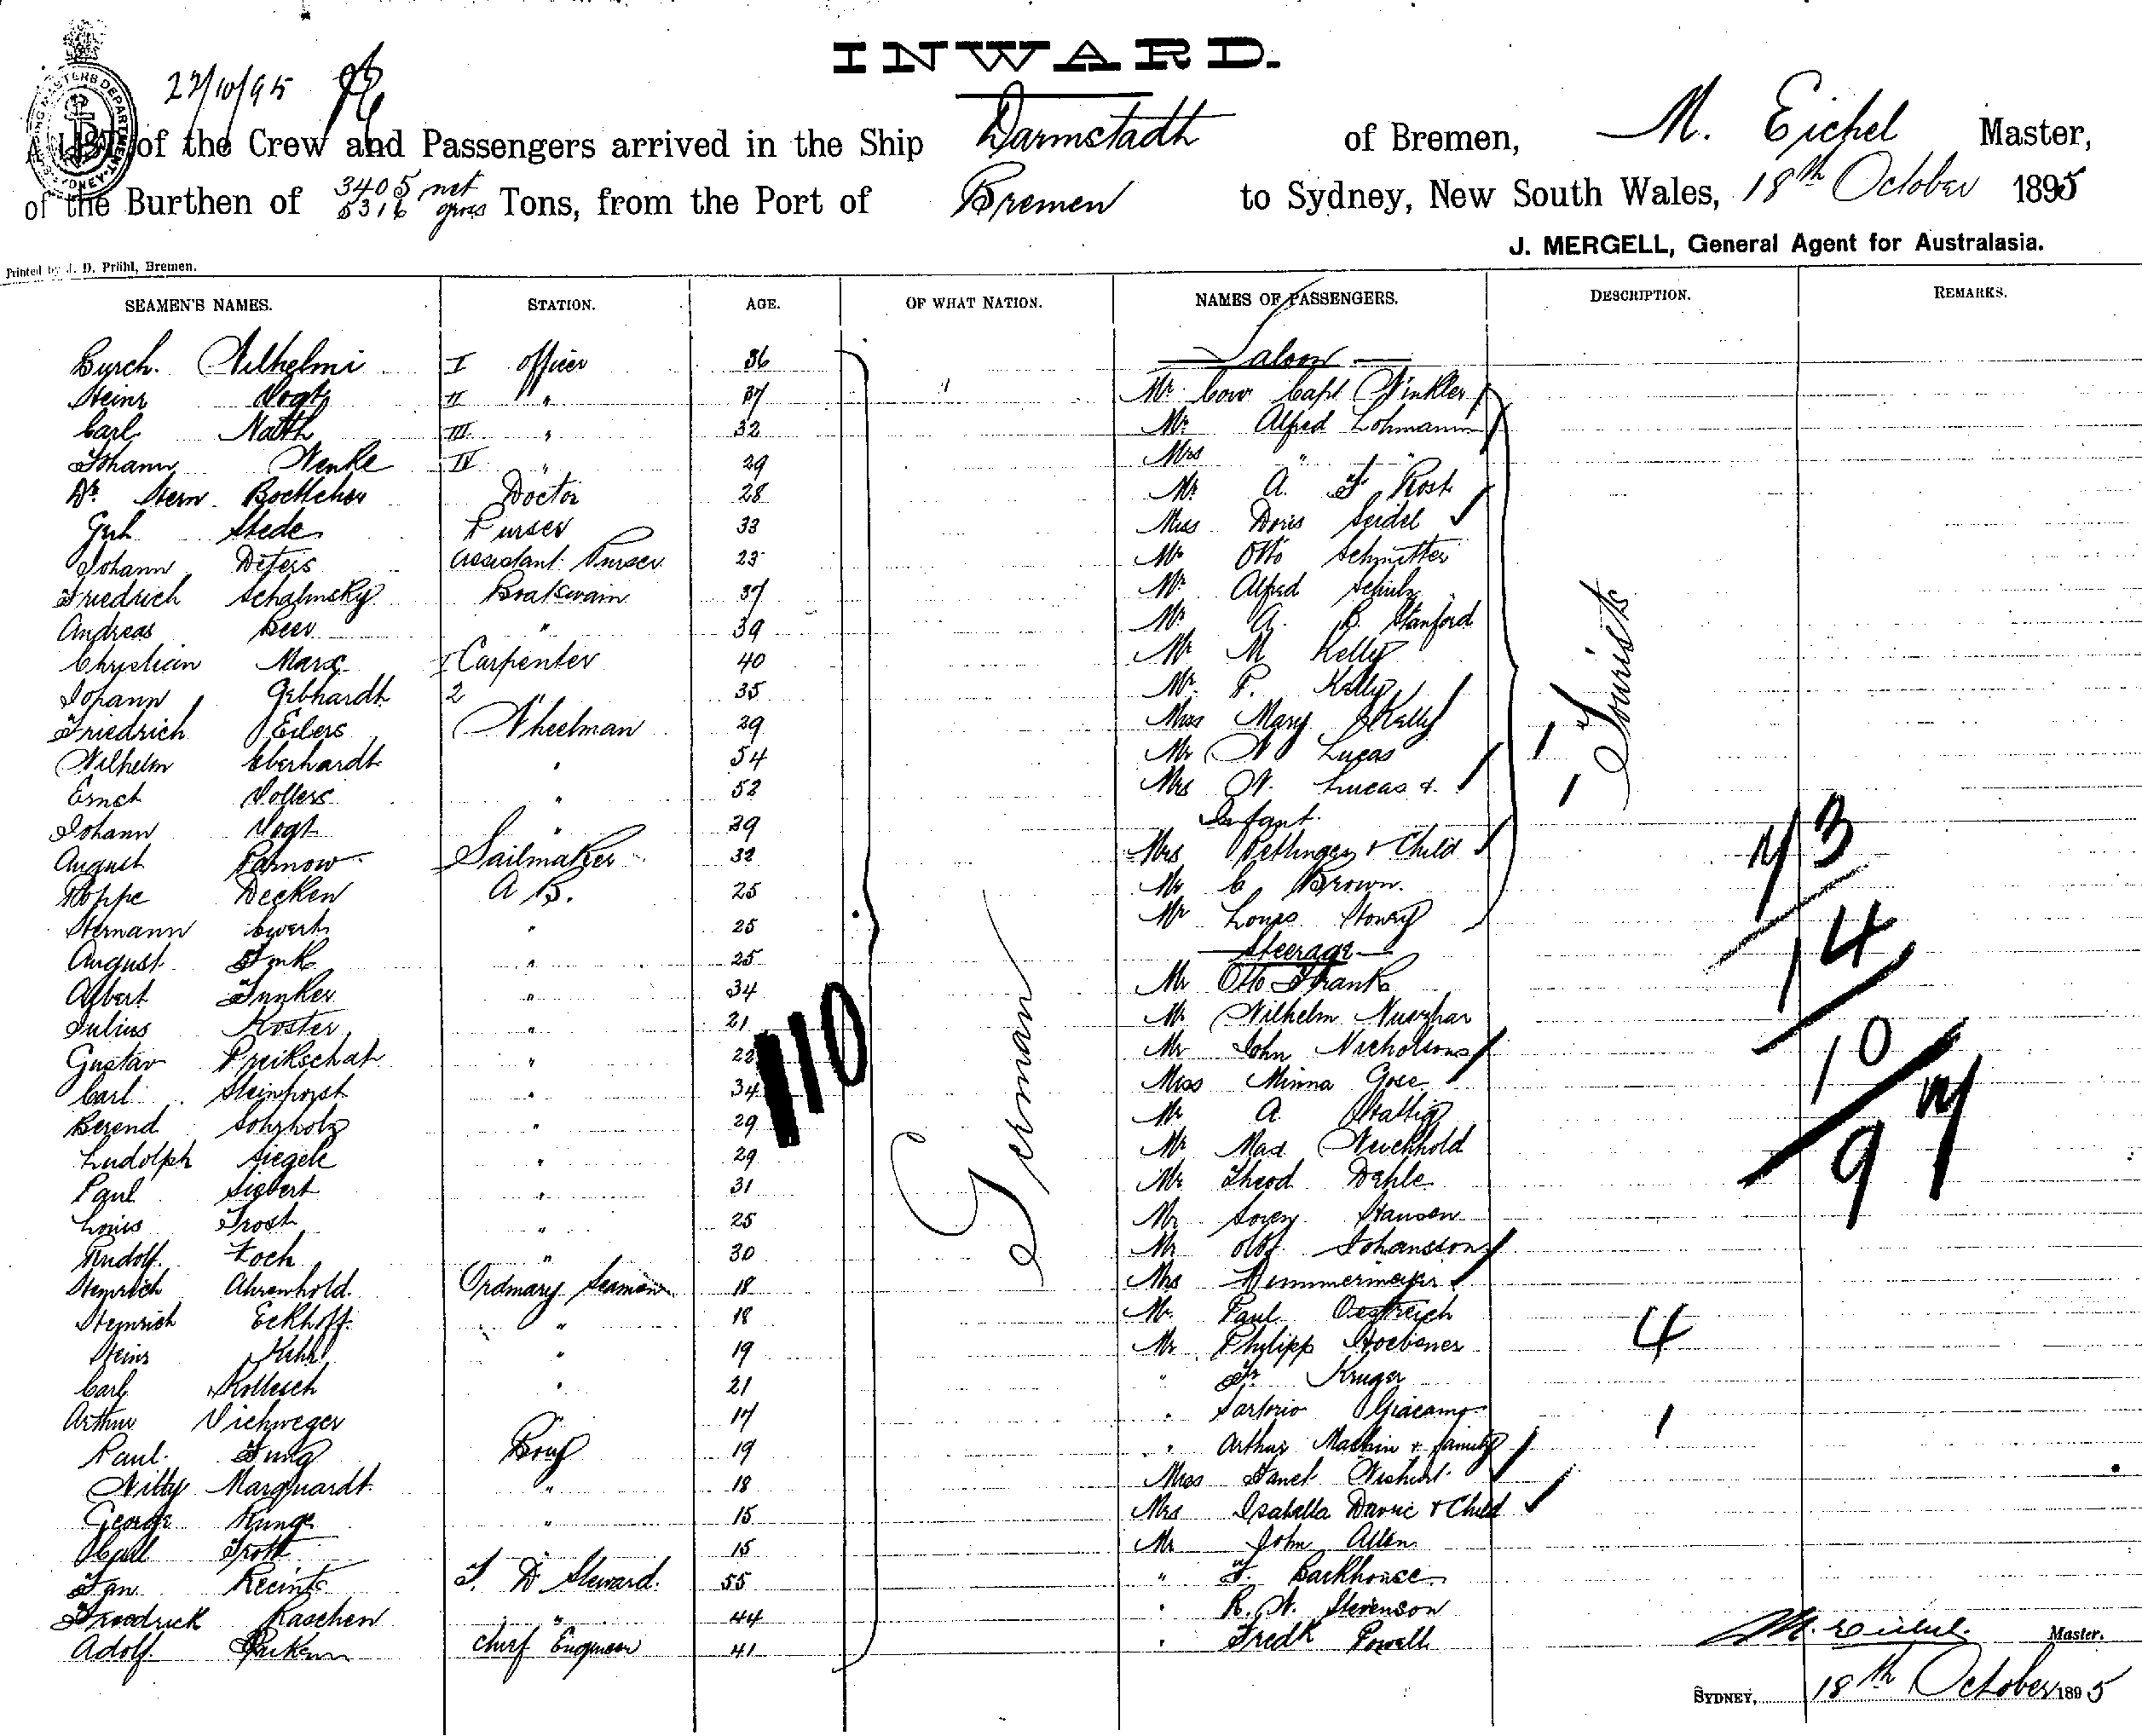 INWARD.
22/10/95
A LIST of the Crew and Passengers arrived in the Ship Darmstadth of Bremen, M. Eichel Master,
of the Burthen of 3405 net 5316 gross Tons, from the Port of Bremen to Sydney, New South Wales, 18th October 1895
J. MERGELL, General Agent for Australasia.
Printed by J. D. Prühl, Bremen.
SEAMEN'S NAMES. STATION. AGE. OF WHAT NATION. NAMES OF PASSENGERS. DESCRIPTION. REMARKS.
Burch. Wilhelmi I officer 36 Saloon
Heinr Vogt II " 37 Mr Cow Capt Winkler
Carl Natth III " 32 Mr Alfred Lohmann
Johann Wenke IV " 29 Mrs " "
Dr. Herm Boettcher Doctor 28 Mr A. F Rost
Gerh Stede Purser 33 Miss Doris Seidel
Johann Deters Assistant Purser 23 Mr Otto Schmitter
Friedrich Schalinsky Boatswain 37 Mr Alfred Schulz
Andreas Beer " 39 Mr A. B. Stanford
Christian Marx I Carpenter 40 Mr M Kelly
Johann Gebhardt 2 35 Mr. P. Kelly
Friedrich Eilers Wheelman 29 Miss Mary Kelly
Wilhelm Eberhardt " 54 Mr W Lucas
Ernst Vollers " 52 Mrs W. Lucas &
Johann Vogt " 39 Infant.
August Parnow Sailmaker 32 Mrs Pettinger & Child
Hoppe Decken A B. 25 Mr C Brown.
Hermann Ewert " 25 Mr Louis Honey
August Fink " 25 Steerage
Albert Junker " 34 Mr Otto Frank
Julius Koster " 21 Mr Wilhelm
Gustav Preikschat " 22 Mr John Nicholsons
Carl Steinhorst " 34 Miss Minna Goee
Berend Sohrholz " 29 Mr A Rattig
Ludolph Siegele " 29 Mr Max Weichhold
Paul Siebert " 31 Mr Theod Dehle
Louis Frost " 25 Mr Soren Hansen
Rudolf. Koch " 30 Mr Olof Johansson
Heinrich Ahrenhold. Ordinary Seamen 18 Mrs Kemmermeyer
Heinrich Eckhoff " 18 Mr. Paul Oestreich
Heinr Kehr " 19 Mr Philipp Hoebener
Carl Kollesch " 21 " Fr Kruger
Arthur Viehweger " 17 " Sartorio Giacamo
Paul. Jung Boy 19 " Arthur Machin & family
Willy Marquardt " 18 Miss Janet Wishart
George Runge " 15 Mrs Isabella Davie & Child
Carl Trott " 15 Mr John Allen
Jan Recints I. D Steward. 55 " F. Backhouse
Friedrick Raschen " 44 " R. W. Stevenson
Adolf. Chief Engineer 41 " Fredk Powell
German
110
Tourists
13
14
10
9
4
1
M. Eichel. Master.
SYDNEY, 18th October 1895